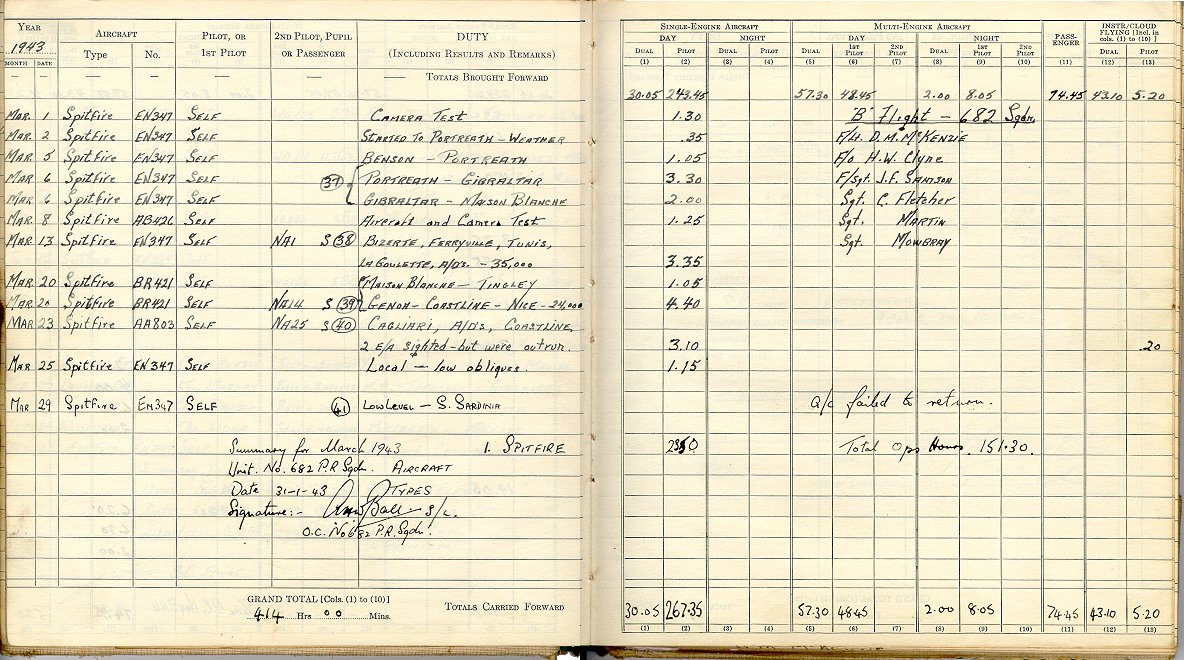 YEAR 1943 AIRCRAFT PILOT, OR 1ST PILOT 2ND PILOT, PUPIL OR PASSENGER DUTY (INCLUDING RESULTS AND REMARKS) SINGLE-ENGINE AIRCRAFT MULTI-ENGINE AIRCRAFT PASS- ENGER INSTR/CLOUD FLYING [Incl. in cols. (1) to (10)]
DAY NIGHT DAY NIGHT
MONTH DATE Type No. DUAL PILOT DUAL PILOT DUAL 1ST PILOT 2ND PILOT DUAL 1ST PILOT 2ND PILOT DUAL PILOT
(1) (2) (3) (4) (5) (6) (7) (8) (9) (10) (11) (12) (13)
— — — — — — — TOTALS BROUGHT FORWARD 30.05 243.45 57.30 48.45 2.00 8.05 74.45 43.10 5.20
MAR. 1 Spitfire EN347 SELF CAMERA TEST 1.30 "B" Flight – 682 Sqdn.
MAR. 2 Spitfire EN347 SELF STARTED TO PORTREATH – WEATHER .35 F/Lt. D.M. McKENZIE
MAR 5 Spitfire EN347 SELF BENSON – PORTREATH 1.05 F/o H.W. Clyne
MAR 6 Spitfire EN347 SELF (37) PORTREATH – GIBRALTAR 3.30 F/Sgt. J.F. SAMSON
MAR 6 Spitfire EN347 SELF GIBRALTAR – MAISON BLANCHE 2.00 Sgt. C. Fletcher
MAR 8 Spitfire AB426 SELF Aircraft and Camera Test 1.25 Sgt. MARTIN
MAR 13 Spitfire EN347 SELF NA1 S (38) BIZERTE, FERRYVILLE, TUNIS, Sgt MOWBRAY
LA GOULETTE, A/D'S. – 35,000 3.35
MAR 20 Spitfire BR421 SELF MAISON BLANCHE – TINGLEY 1.05
MAR 20 Spitfire BR421 SELF NA14 S (39) GENOA – COASTLINE – NICE – 24,000 4.40
MAR 23 Spitfire AA803 SELF NA25 S (40) CAGLIARI, A/D'S, COASTLINE,
2 E/A sighted – but were outrun. 3.10 .20
MAR 25 Spitfire EN347 SELF Local – low obliques. 1.15
MAR 29 Spitfire EN347 SELF (41) LOW LEVEL – S. SARDINIA a/c failed to return.
Summary for March 1943 1. SPITFIRE Total Ops Hours. 151.30.
Unit. No. 682 P.R Sqdn. AIRCRAFT
Date 31-1-43 TYPES
Signature:- S/L.
O.C. No 682 P.R. Sqdn.
GRAND TOTAL [Cols. (1) to (10)] 414 Hrs 00 Mins. TOTALS CARRIED FORWARD 30.05 267.35 57.30 48.45 2.00 8.05 74.45 43.10 5.20
(1) (2) (3) (4) (5) (6) (7) (8) (9) (10) (11) (12) (13)